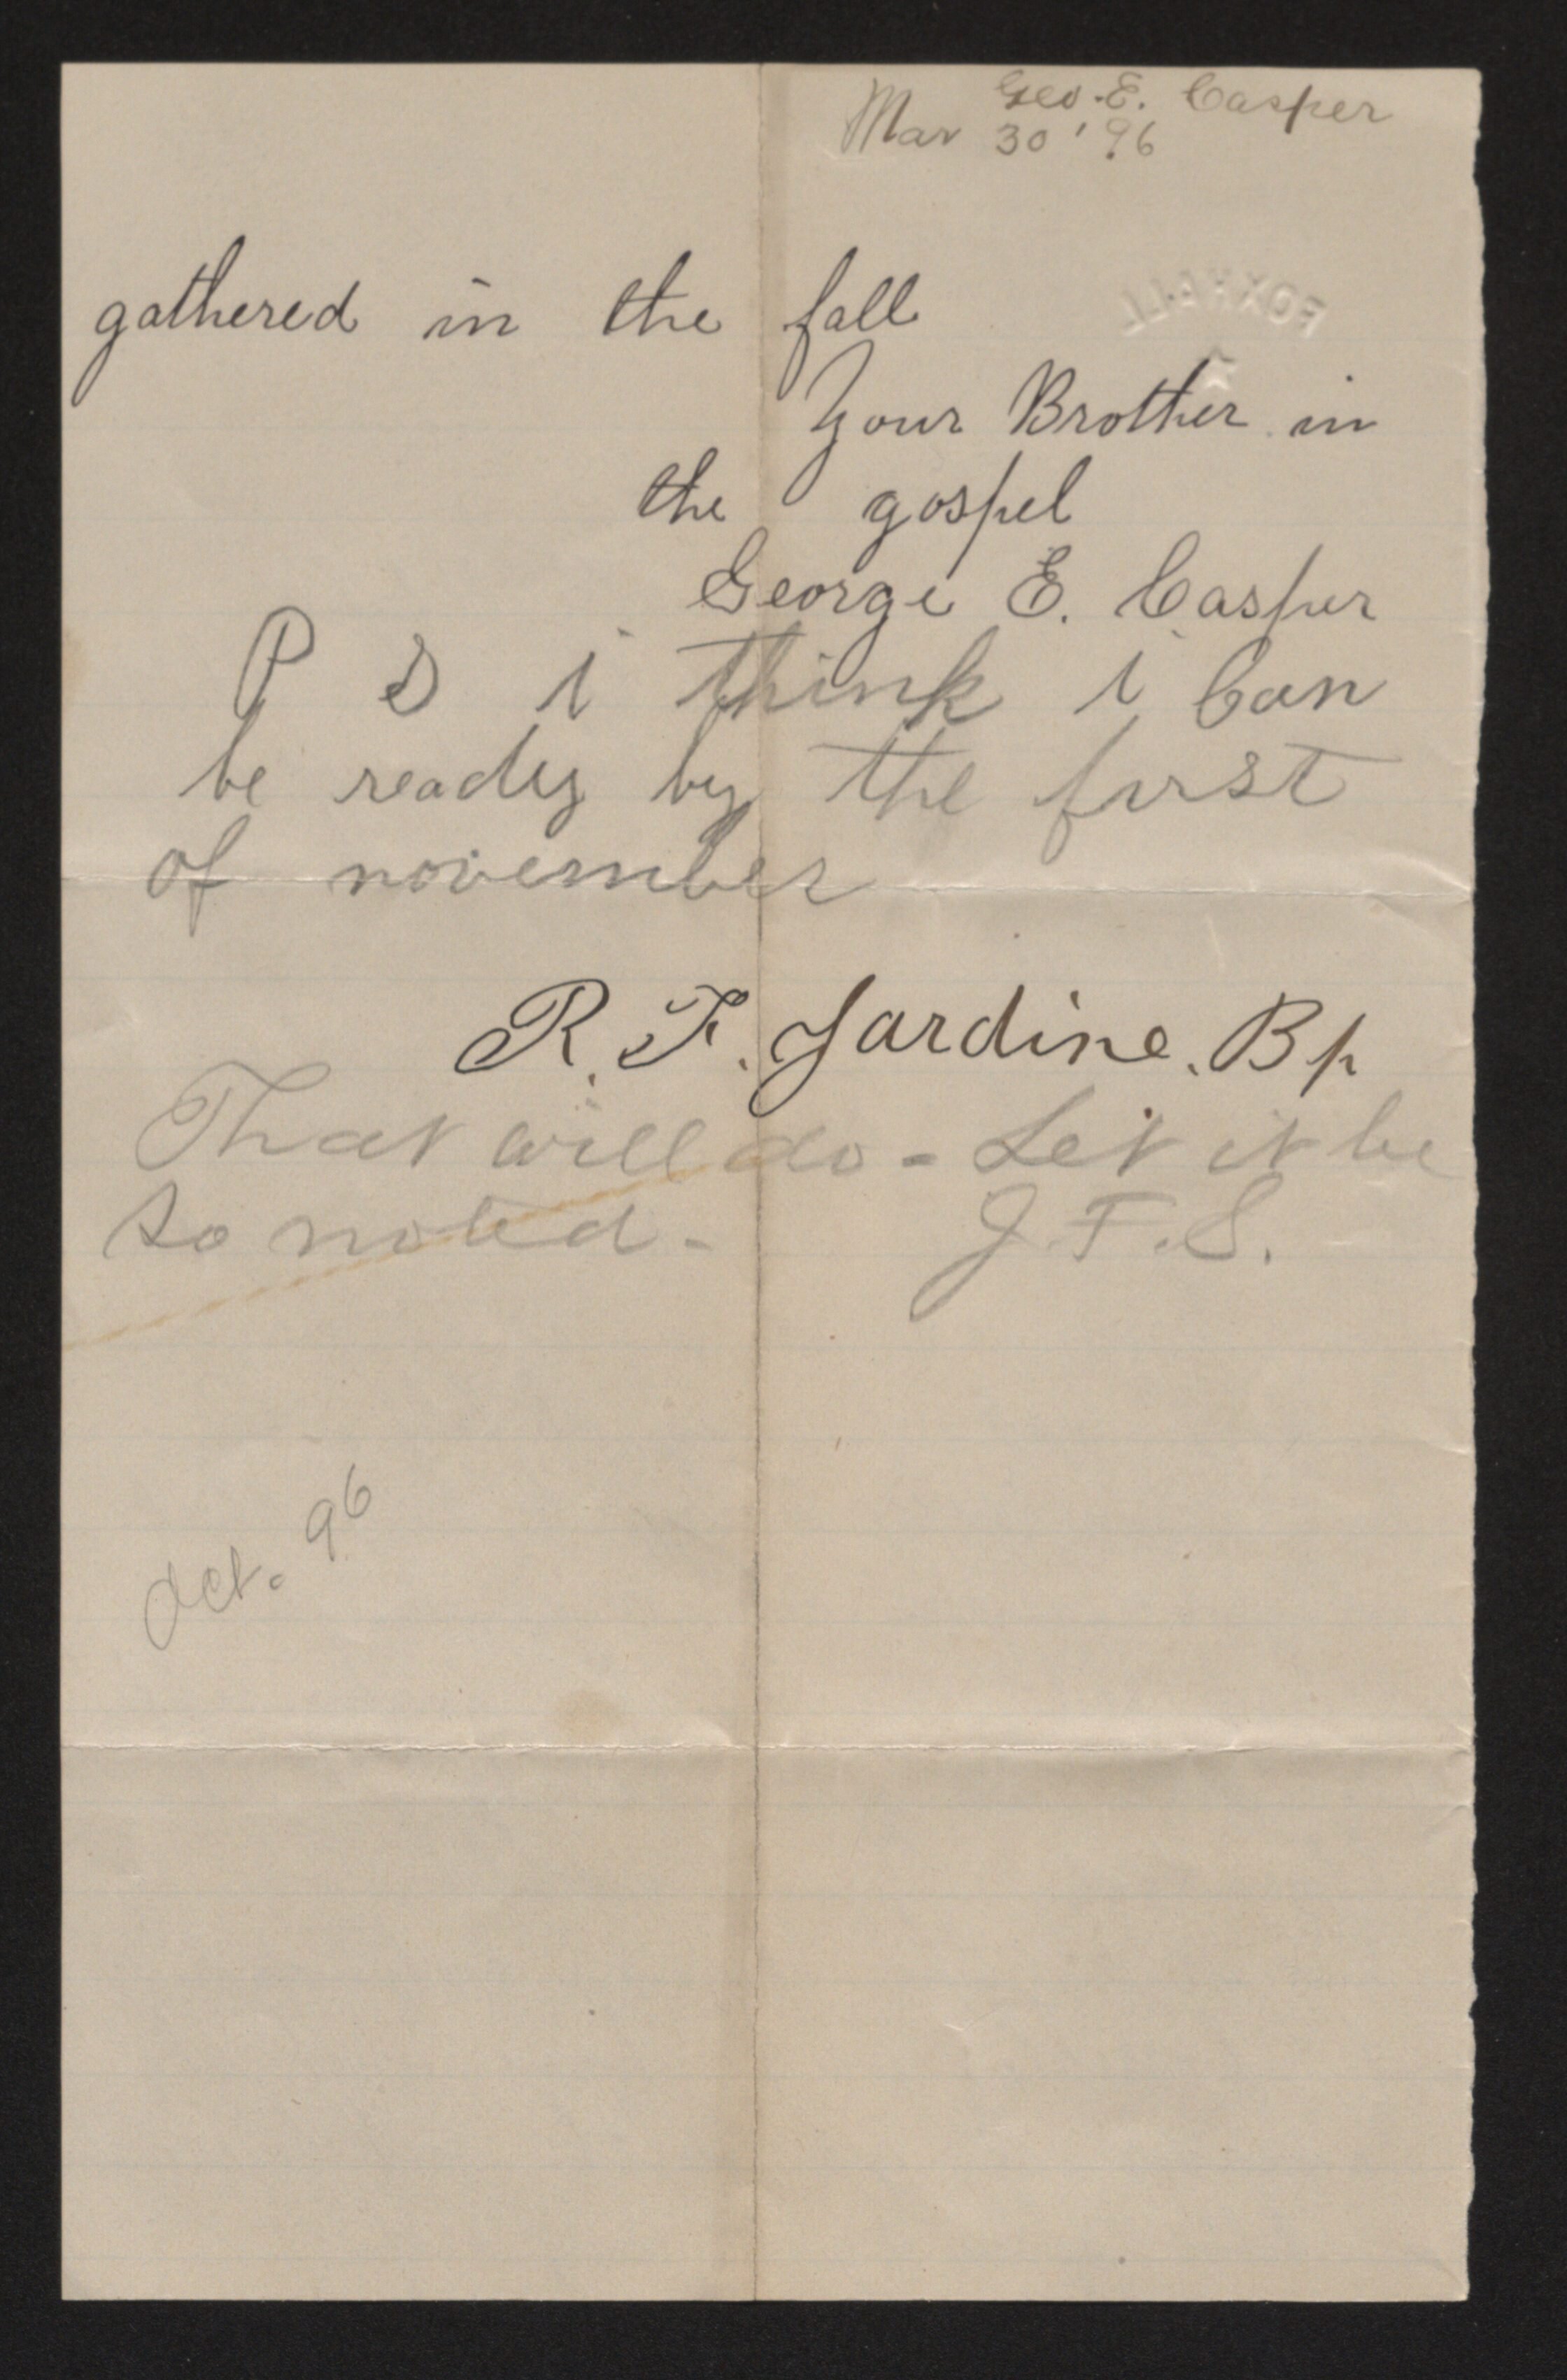 Geo. E. Casper
Mar 30 '96
FOXHALL
gathered in the fall
Your Brother in
the gospel
George E. Casper
P S i think i Can
be ready by the first
of november
R. T. Jardine. Bp
That will do - Let it be
so noted - J. F. S.
Oct. 96